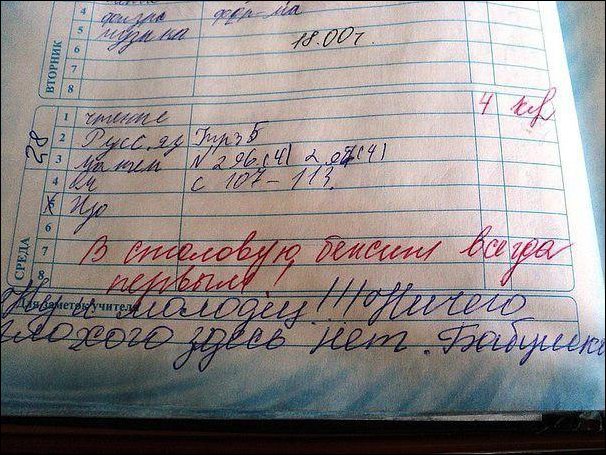 физра форма
5 музыка
6 18.00 г.
7
8
ВТОРНИК
28
1 чтение 4
2 Русс. яз Упр 5
3 матем N 296(4) 297(4)
4 с 107-113.
5 Изо
6
7 В столовую бежит всегда
8 первым!
СРЕДА
Для заметок учителя
Ну и молодец!!! Ничего
плохого здесь нет. Бабушка